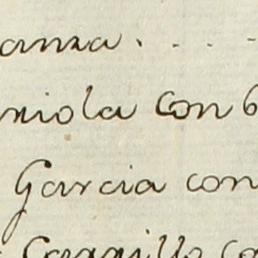 anza. . . .
riola con 6
Garcia con